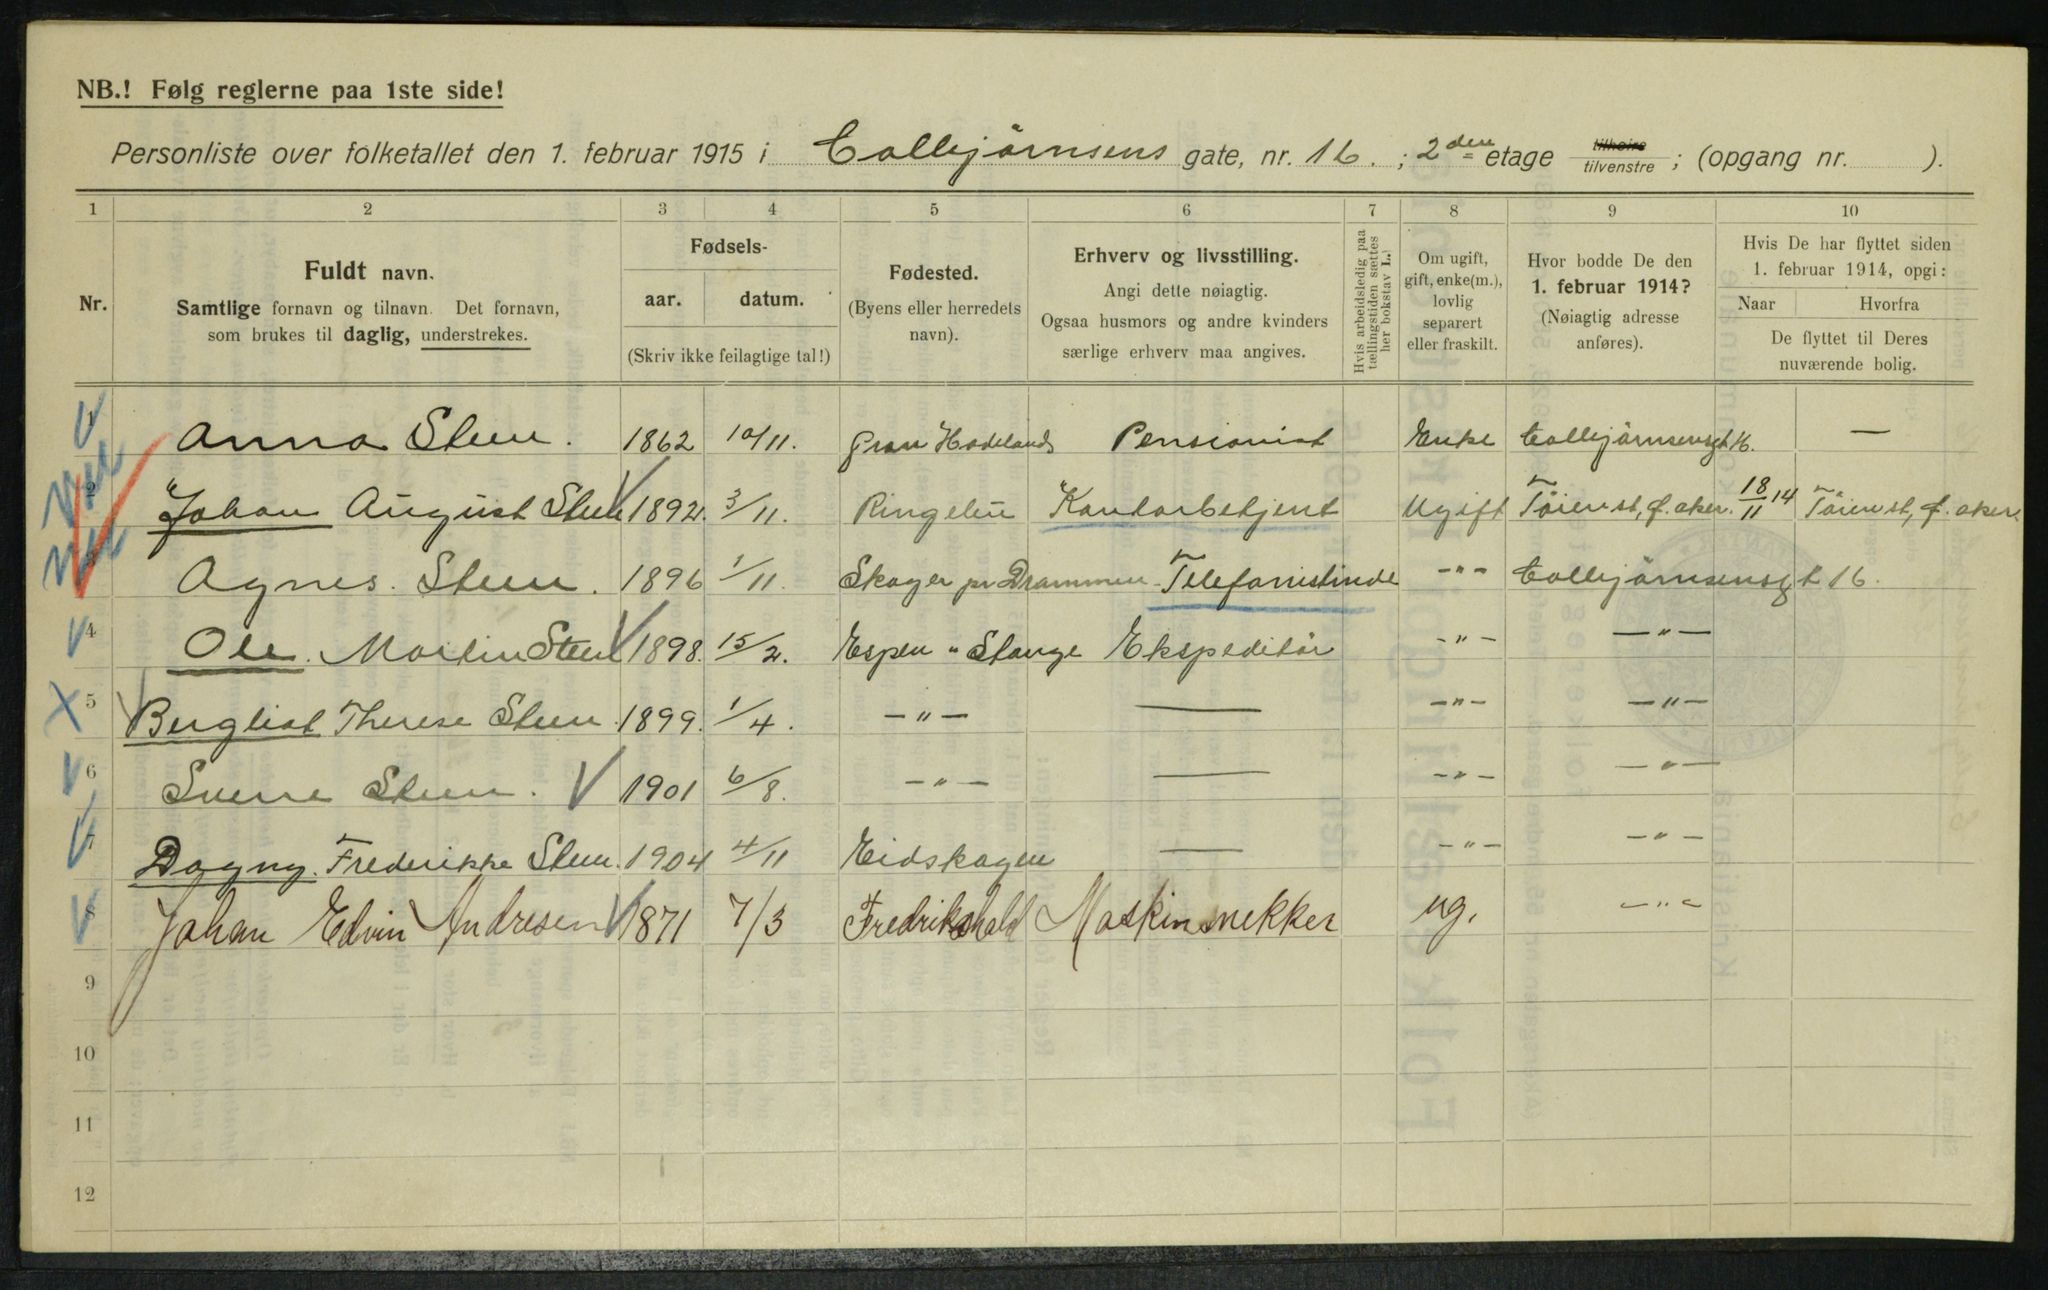 NB.! Følg reglerne paa 1ste side!
Personliste over folketallet den 1. februar 1915 i Colbjørnsens gate, nr. 16. ; 2den etage tilhøire tilvenstre ; (opgang nr. ).
1 2 3 4 5 6 7 8 9 10
Nr.
Fuldt navn.
Samtlige fornavn og tilnavn. Det fornavn,
som brukes til daglig, understrekes.
Fødsels-
aar. datum.
(Skriv ikke feilagtige tal!)
Fødested.
(Byens eller herredets
navn).
Erhverv og livsstilling.
Angi dette nøiagtig.
Ogsaa husmors og andre kvinders
særlige erhverv maa angives.
Hvis arbeidsledig paa
tællingstiden sættes
her bokstav L.
Om ugift,
gift, enke(m.),
lovlig
separert
eller fraskilt.
Hvor bodde De den
1. februar 1914?
(Nøiagtig adresse
anføres).
Hvis De har flyttet siden
1. februar 1914, opgi:
Naar Hvorfra
De flyttet til Deres
nuværende bolig.
1 Anna Steen. 1862 10/11. Gran Hadeland Pensionist Enke Colbjørnsensgt 16. —
2 Johan August Steen 1892. 3/11. Ringebu Kontorbetjent Ugift Tøienst, Ø. Aker. 18/11 14 Tøienst, Ø. Aker.
3 Agnes. Steen. 1896 1/11. Skoger pr Drammen Telefonistinde -"- Colbjørnsensgt 16.
4 Ole. Martin Steen 1898. 15/2. Espen " Stange Ekspeditør -"- -"-
5 Bergliot Therese Steen. 1899. 1/4. -"- — -"- -"-
6 Sverre Steen. 1901 6/8. -"- — -"- -"-
7 Dagny. Frederikke Steen. 1904 4/11 Eidskogen — -"- -"-
8 Johan Edvin Andresen 1871 7/3 Fredrikshald Maskinsnekker ug. -"-
9
10
11
12